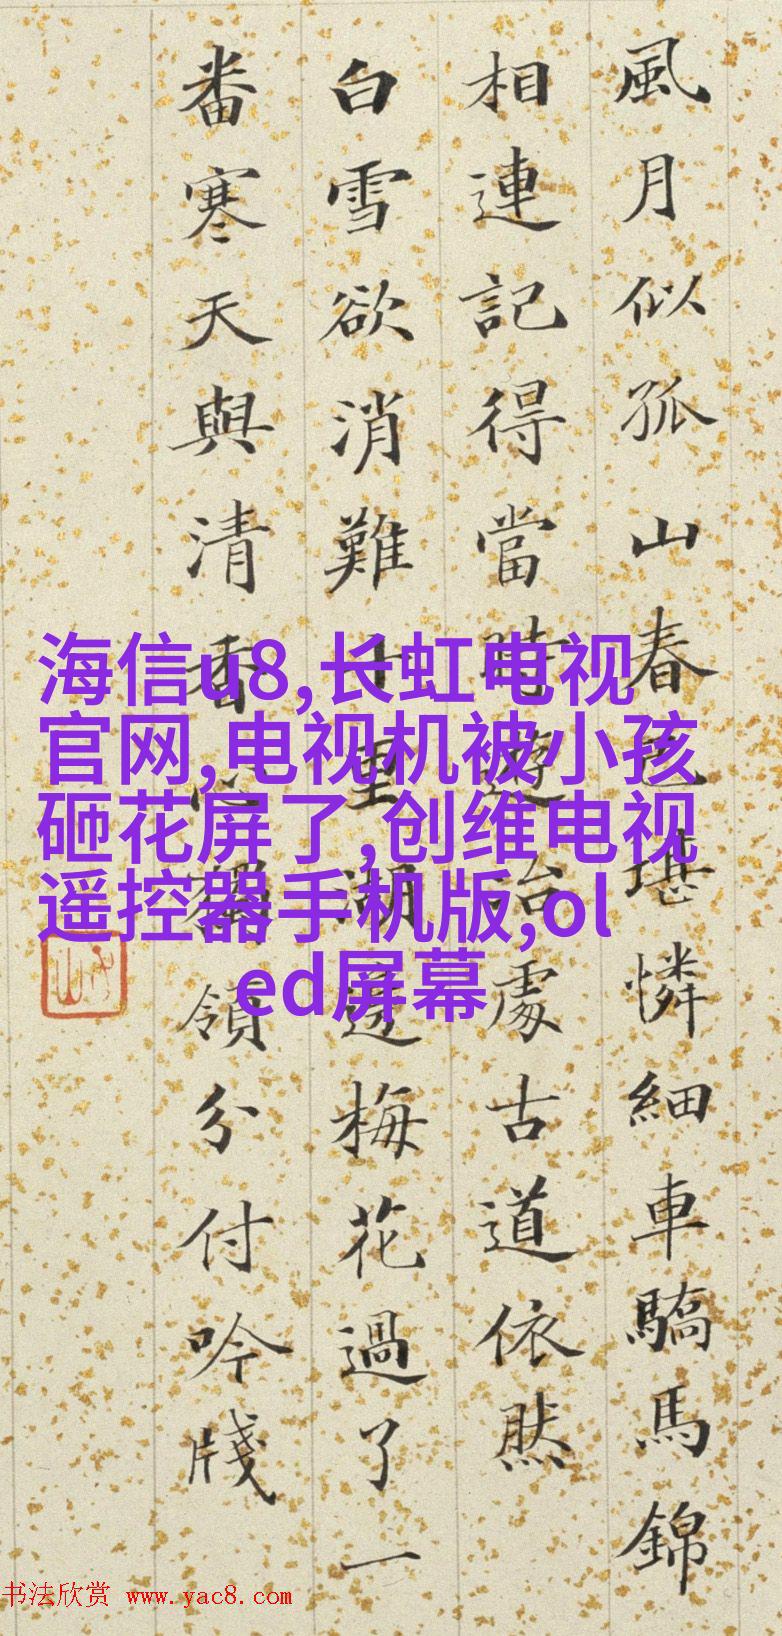 風月似孤山春色堪憐細車驕馬錦
相連記得當時遊冶處古道依然
白雪欲消難十里湖邊梅花過了一
番寒天與清香心獨領分付吟牋
海信u8,长虹电视
官网,电视机被小孩
砸花屏了,创维电视
遥控器手机版,ol
ed屏幕
书法欣赏 www.yac8.com